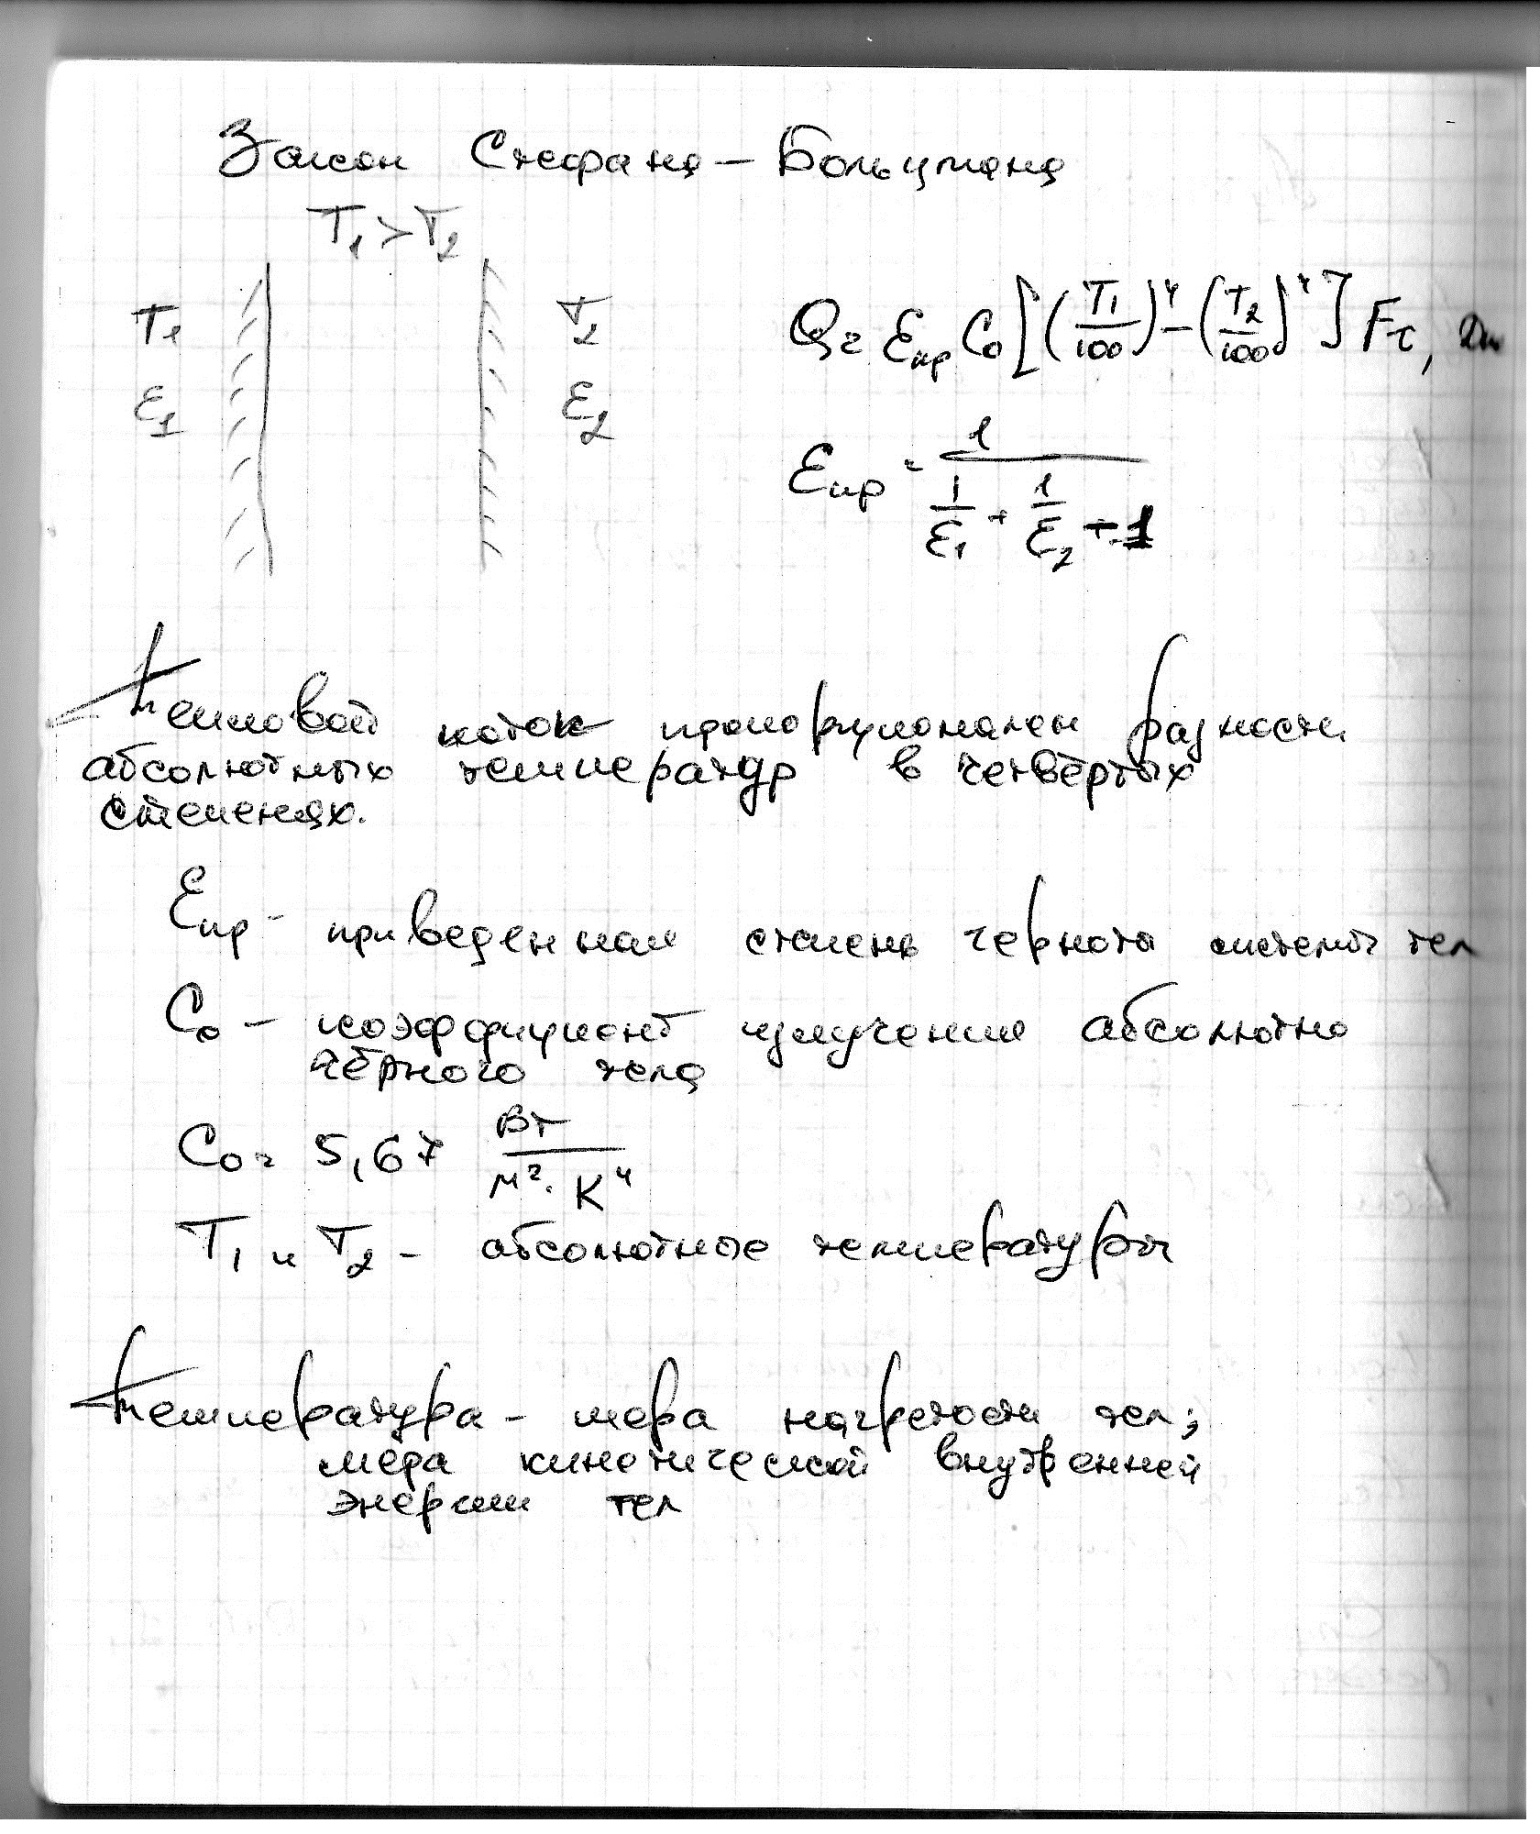 Закон Стефана – Больцмана
T₁ > T₂
T₁ T₂
ε₁ ε₂
Q = εпр C₀ [(T₁/100)⁴ – (T₂/100)⁴] Fτ, Дж
εпр = 1 / (1/ε₁ + 1/ε₂ - 1)
Тепловой поток пропорционален разности
абсолютных температур в четвёртых
степенях.
εпр - приведенная степень черноты системы тел
C₀ – коэффициент излучения абсолютно
чёрного тела
C₀ = 5,67 Вт / м² · К⁴
T₁ и T₂ – абсолютные температуры
Температура – мера нагретости тел;
мера кинетической внутренней
энергии тел